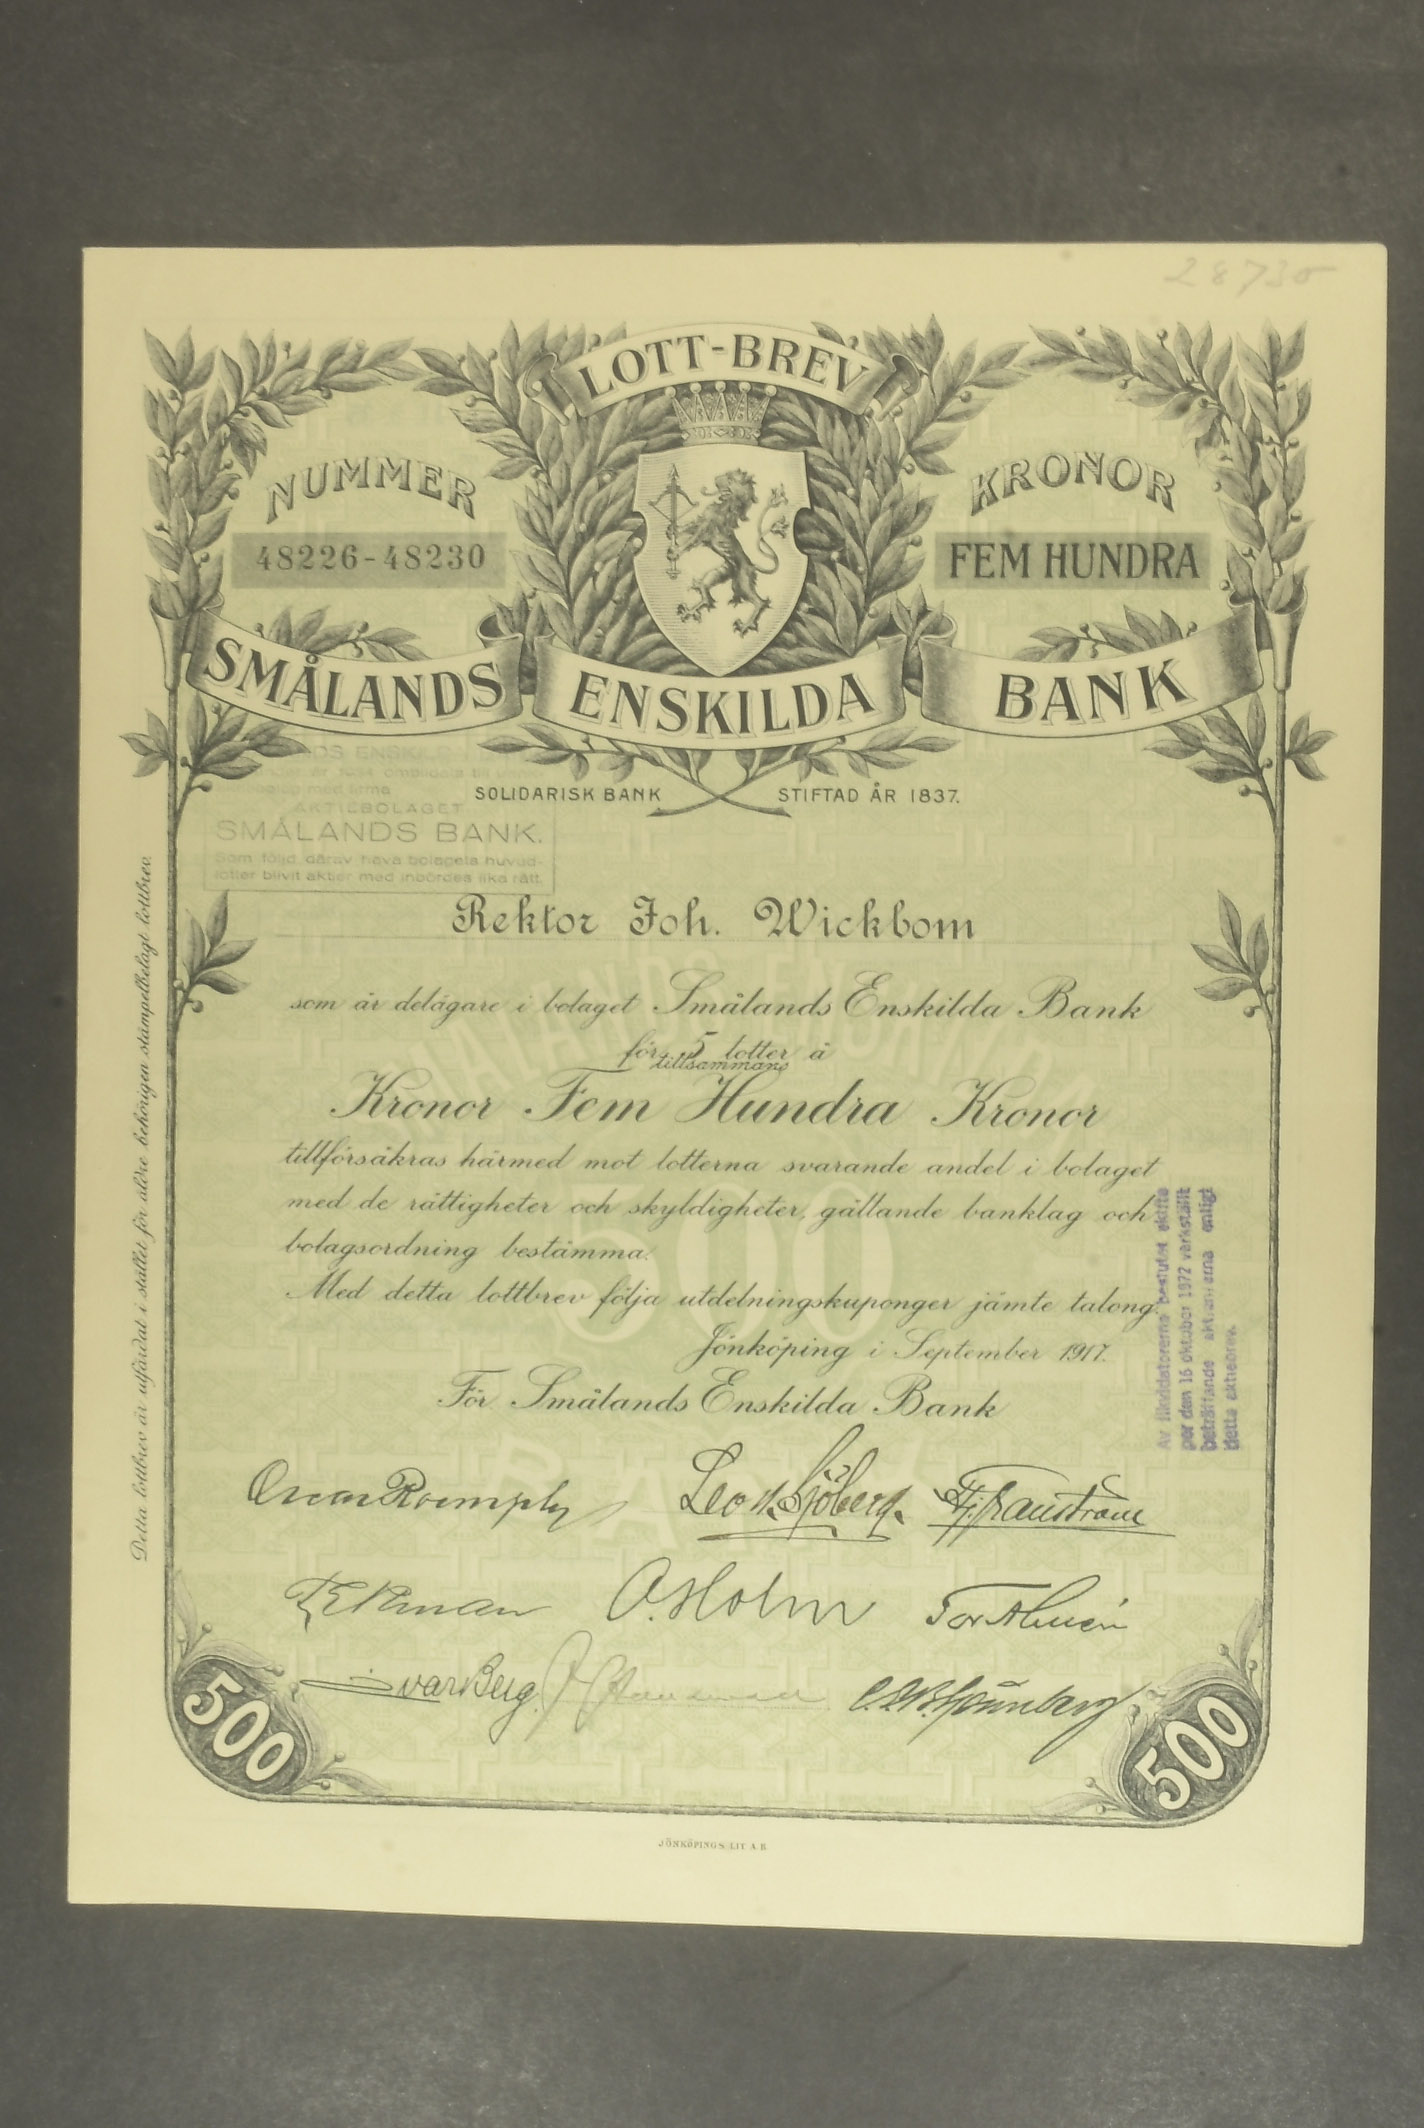 28730
LOTT-BREV
NUMMER
48226-48230
KRONOR
FEM HUNDRA
SMÅLANDS ENSKILDA BANK
SOLIDARISK BANK STIFTAD ÅR 1837.
ENSKIL
år 1934 ombildats till
med firma
AKTIEBOLAGET
SMÅLANDS BANK.
Som följd därav hava bolagets huvud-
lotter blivit aktier med inbördes lika rätt.
Rektor Joh. Wickbom
som är delägare i bolaget Smålands Enskilda Bank
för 5 lotter à
tillsammans
Kronor Fem Hundra Kronor
tillförsäkras härmed mot lotterna svarande andel i bolaget
med de rättigheter och skyldigheter, gällande banklag och
bolagsordning bestämma.
Med detta lottbrev följa utdelningskuponger jämte talong.
Jönköping i September 1917.
För Smålands Enskilda Bank
Leon. Sjöberg.
A. Holm
Tor Almén
Ivar Berg.
500
500
JÖNKÖPINGS LIT A B
Detta lottbrev är utfärdat i stället för äldre behörigen stämpelbelagt lottbrev.
Av likvidatorerna beslutat skifte
per den 16 oktober 1972 verkställt
beträffande aktierna enligt
detta aktiebrev.